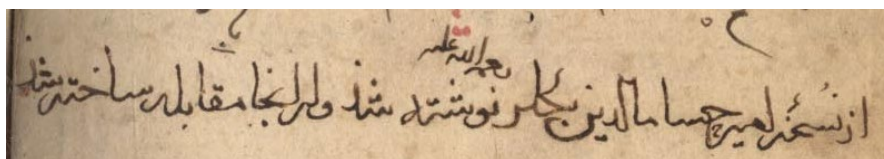 رحمة الله علیه
از نسخهٔ امیر حسام الدین نوشته شد و از انجا مقابله ساخته شد